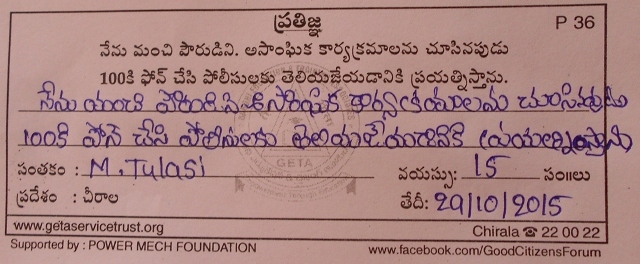 ప్రతిజ్ఞ
P 36
నేను మంచి పౌరుడిని. అసాంఘిక కార్యక్రమాలను చూసినపుడు
100కి ఫోన్ చేసి పోలీసులకు తెలియజేయడానికి ప్రయత్నిస్తాను.
నేను మంచి పౌరుడిని అసాంఘిక కార్యక్రమాలను చూసినపుడు
100కి ఫోన్ చేసి పోలీసులకు తెలియజేయడానికి ప్రయత్నిస్తాను
సంతకం : M. Tulasi వయస్సు: 15 సం॥లు
ప్రదేశం : చీరాల తేదీ: 29/10/2015
GETA
www.getaservicetrust.org Chirala ☎ 22 00 22
Supported by : POWER MECH FOUNDATION www.facebook.com/GoodCitizensForum